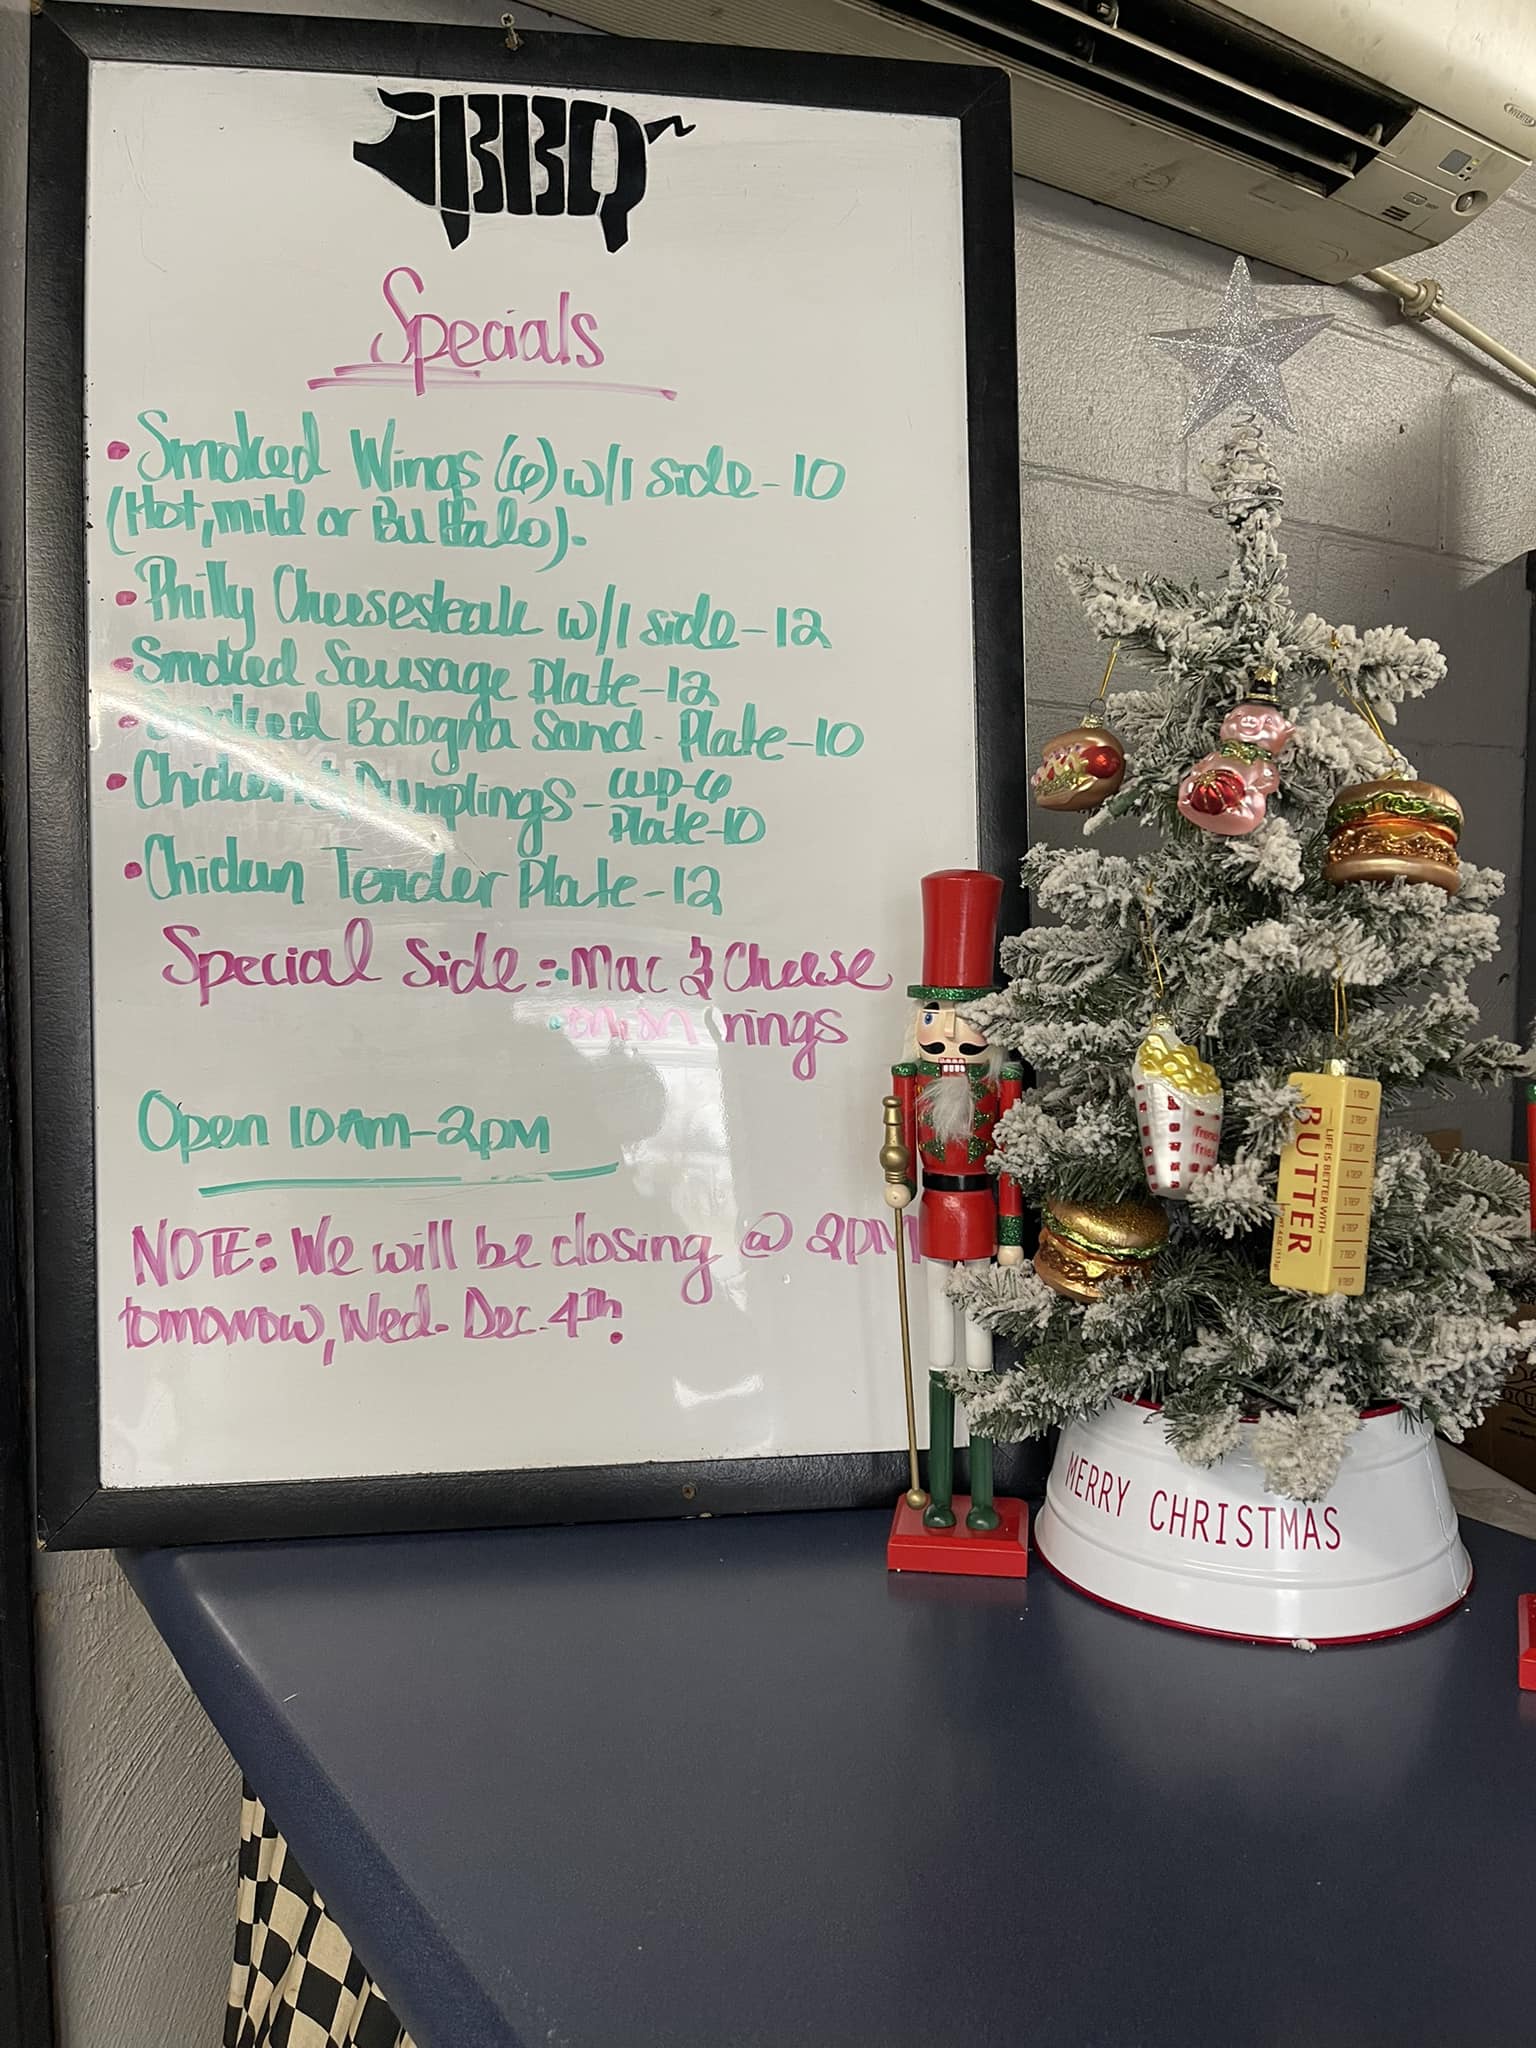 BBQ
Specials
• Smoked Wings (6) w/1 side - 10
(Hot, mild or Buffalo).
• Philly Cheesesteak w/1 side - 12
• Smoked Sausage Plate - 12
• Smoked Bologna Sand. Plate - 10
• Chicken & Dumplings - cup - 6
Plate - 10
• Chicken Tender Plate - 12
Special Side: • Mac & Cheese
• onion rings
Open 10Am - 2pm
NOTE: We will be closing @ 2pm
tomorrow, Wed. Dec. 4th!
INVERTER
french
fries
LIFE IS BETTER WITH
BUTTER
1 TBSP
2 TBSP
3 TBSP
4 TBSP
5 TBSP
6 TBSP
7 TBSP
8 TBSP
MERRY CHRISTMAS